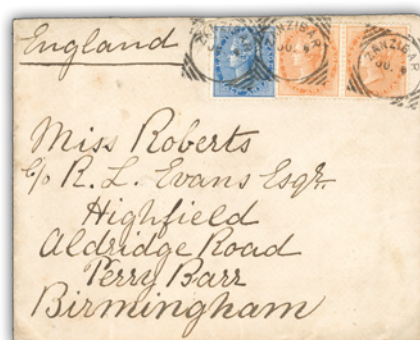 England
ZANZIBAR
ZANZIBAR
ZANZIBAR
JU.
Miss Roberts
c/o R. L. Evans Esqr.
Highfield
Aldridge Road
Perry Barr
Birmingham